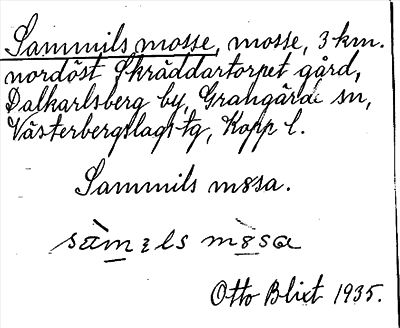 Sammils mosse, mosse, 3 km.
nordöst Skräddartorpet gård,
Dalkarlsberg by, Grangärde sn,
Västerbergslags tg, Kopp l.
Sammils møsa.
sàmεls mø̀sa
Otto Blixt 1935.